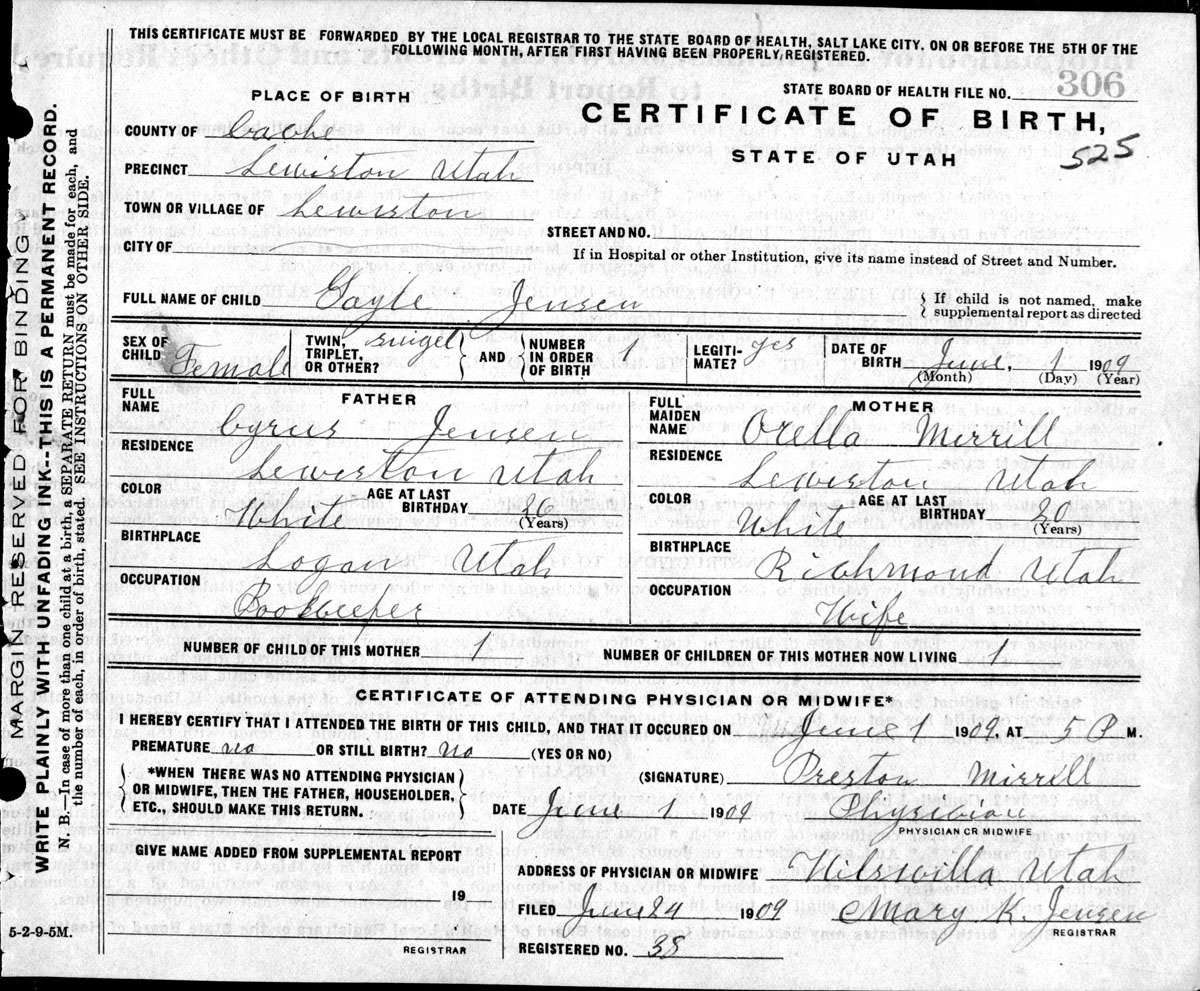 THIS CERTIFICATE MUST BE FORWARDED BY THE LOCAL REGISTRAR TO THE STATE BOARD OF HEALTH, SALT LAKE CITY, ON OR BEFORE THE 5TH OF THE
FOLLOWING MONTH, AFTER FIRST HAVING BEEN PROPERLY REGISTERED.
STATE BOARD OF HEALTH FILE NO. 306
PLACE OF BIRTH
CERTIFICATE OF BIRTH,
STATE OF UTAH
525
COUNTY OF Cache
PRECINCT Lewiston Utah
TOWN OR VILLAGE OF Lewiston
STREET AND NO.
CITY OF
If in Hospital or other Institution, give its name instead of Street and Number.
FULL NAME OF CHILD Gayle Jensen
If child is not named, make
supplemental report as directed
SEX OF CHILD Female TWIN, TRIPLET, OR OTHER? Singel AND NUMBER IN ORDER OF BIRTH 1 LEGITI-MATE? yes DATE OF BIRTH June, 1 1909
(Month) (Day) (Year)
FATHER
FULL NAME Cyrus Jensen
RESIDENCE Lewiston Utah
COLOR White AGE AT LAST BIRTHDAY 26 (Years)
BIRTHPLACE Logan Utah
OCCUPATION Bookkeeper
MOTHER
FULL MAIDEN NAME Orella Merrill
RESIDENCE Lewiston Utah
COLOR White AGE AT LAST BIRTHDAY 20 (Years)
BIRTHPLACE Richmond Utah
OCCUPATION Wife
NUMBER OF CHILD OF THIS MOTHER 1 NUMBER OF CHILDREN OF THIS MOTHER NOW LIVING 1
CERTIFICATE OF ATTENDING PHYSICIAN OR MIDWIFE*
I HEREBY CERTIFY THAT I ATTENDED THE BIRTH OF THIS CHILD, AND THAT IT OCCURED ON June 1 1909, AT 5 P M.
PREMATURE no OR STILL BIRTH? no (YES OR NO)
*WHEN THERE WAS NO ATTENDING PHYSICIAN
OR MIDWIFE, THEN THE FATHER, HOUSEHOLDER,
ETC., SHOULD MAKE THIS RETURN.
(SIGNATURE) Preston Mirrill
DATE June 1 1909 Physician
PHYSICIAN OR MIDWIFE
GIVE NAME ADDED FROM SUPPLEMENTAL REPORT
19
REGISTRAR
ADDRESS OF PHYSICIAN OR MIDWIFE Utah
FILED June 24 1909 Mary K. Jensen
REGISTRAR
REGISTERED NO. 38
5-2-9-5M.
MARGIN RESERVED FOR BINDING
WRITE PLAINLY WITH UNFADING INK--THIS IS A PERMANENT RECORD.
N. B.—In case of more than one child at a birth, a SEPARATE RETURN must be made for each, and
the number of each, in order of birth, stated. SEE INSTRUCTIONS ON OTHER SIDE.